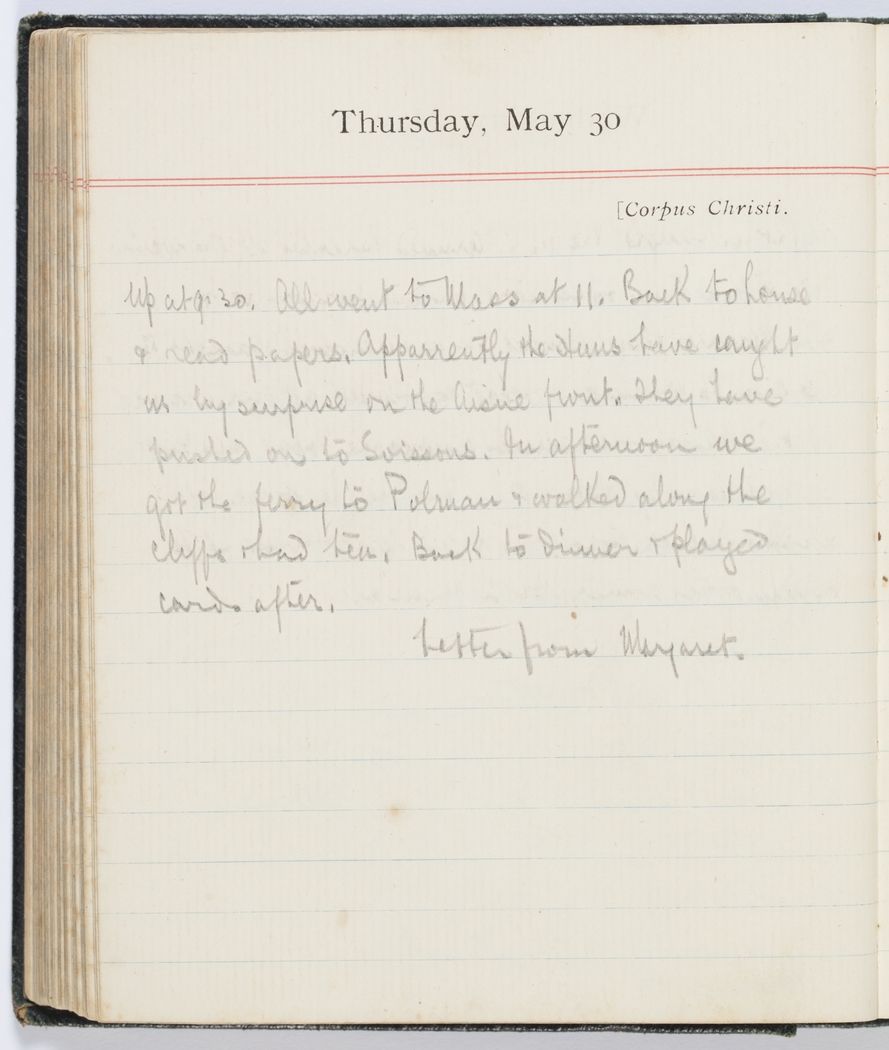 Thursday, May 30
[Corpus Christi.
Up at 9.30. All went to Mass at 11. Back to house
& read papers. Apparrently the Huns have caught
us by surprise on the Aisne front. They have
pushed on to Soissons. In afternoon we
got the ferry to Polruan & walked along the
cliffs & had tea. Back to dinner & played
cards after.
Letter from Margaret.